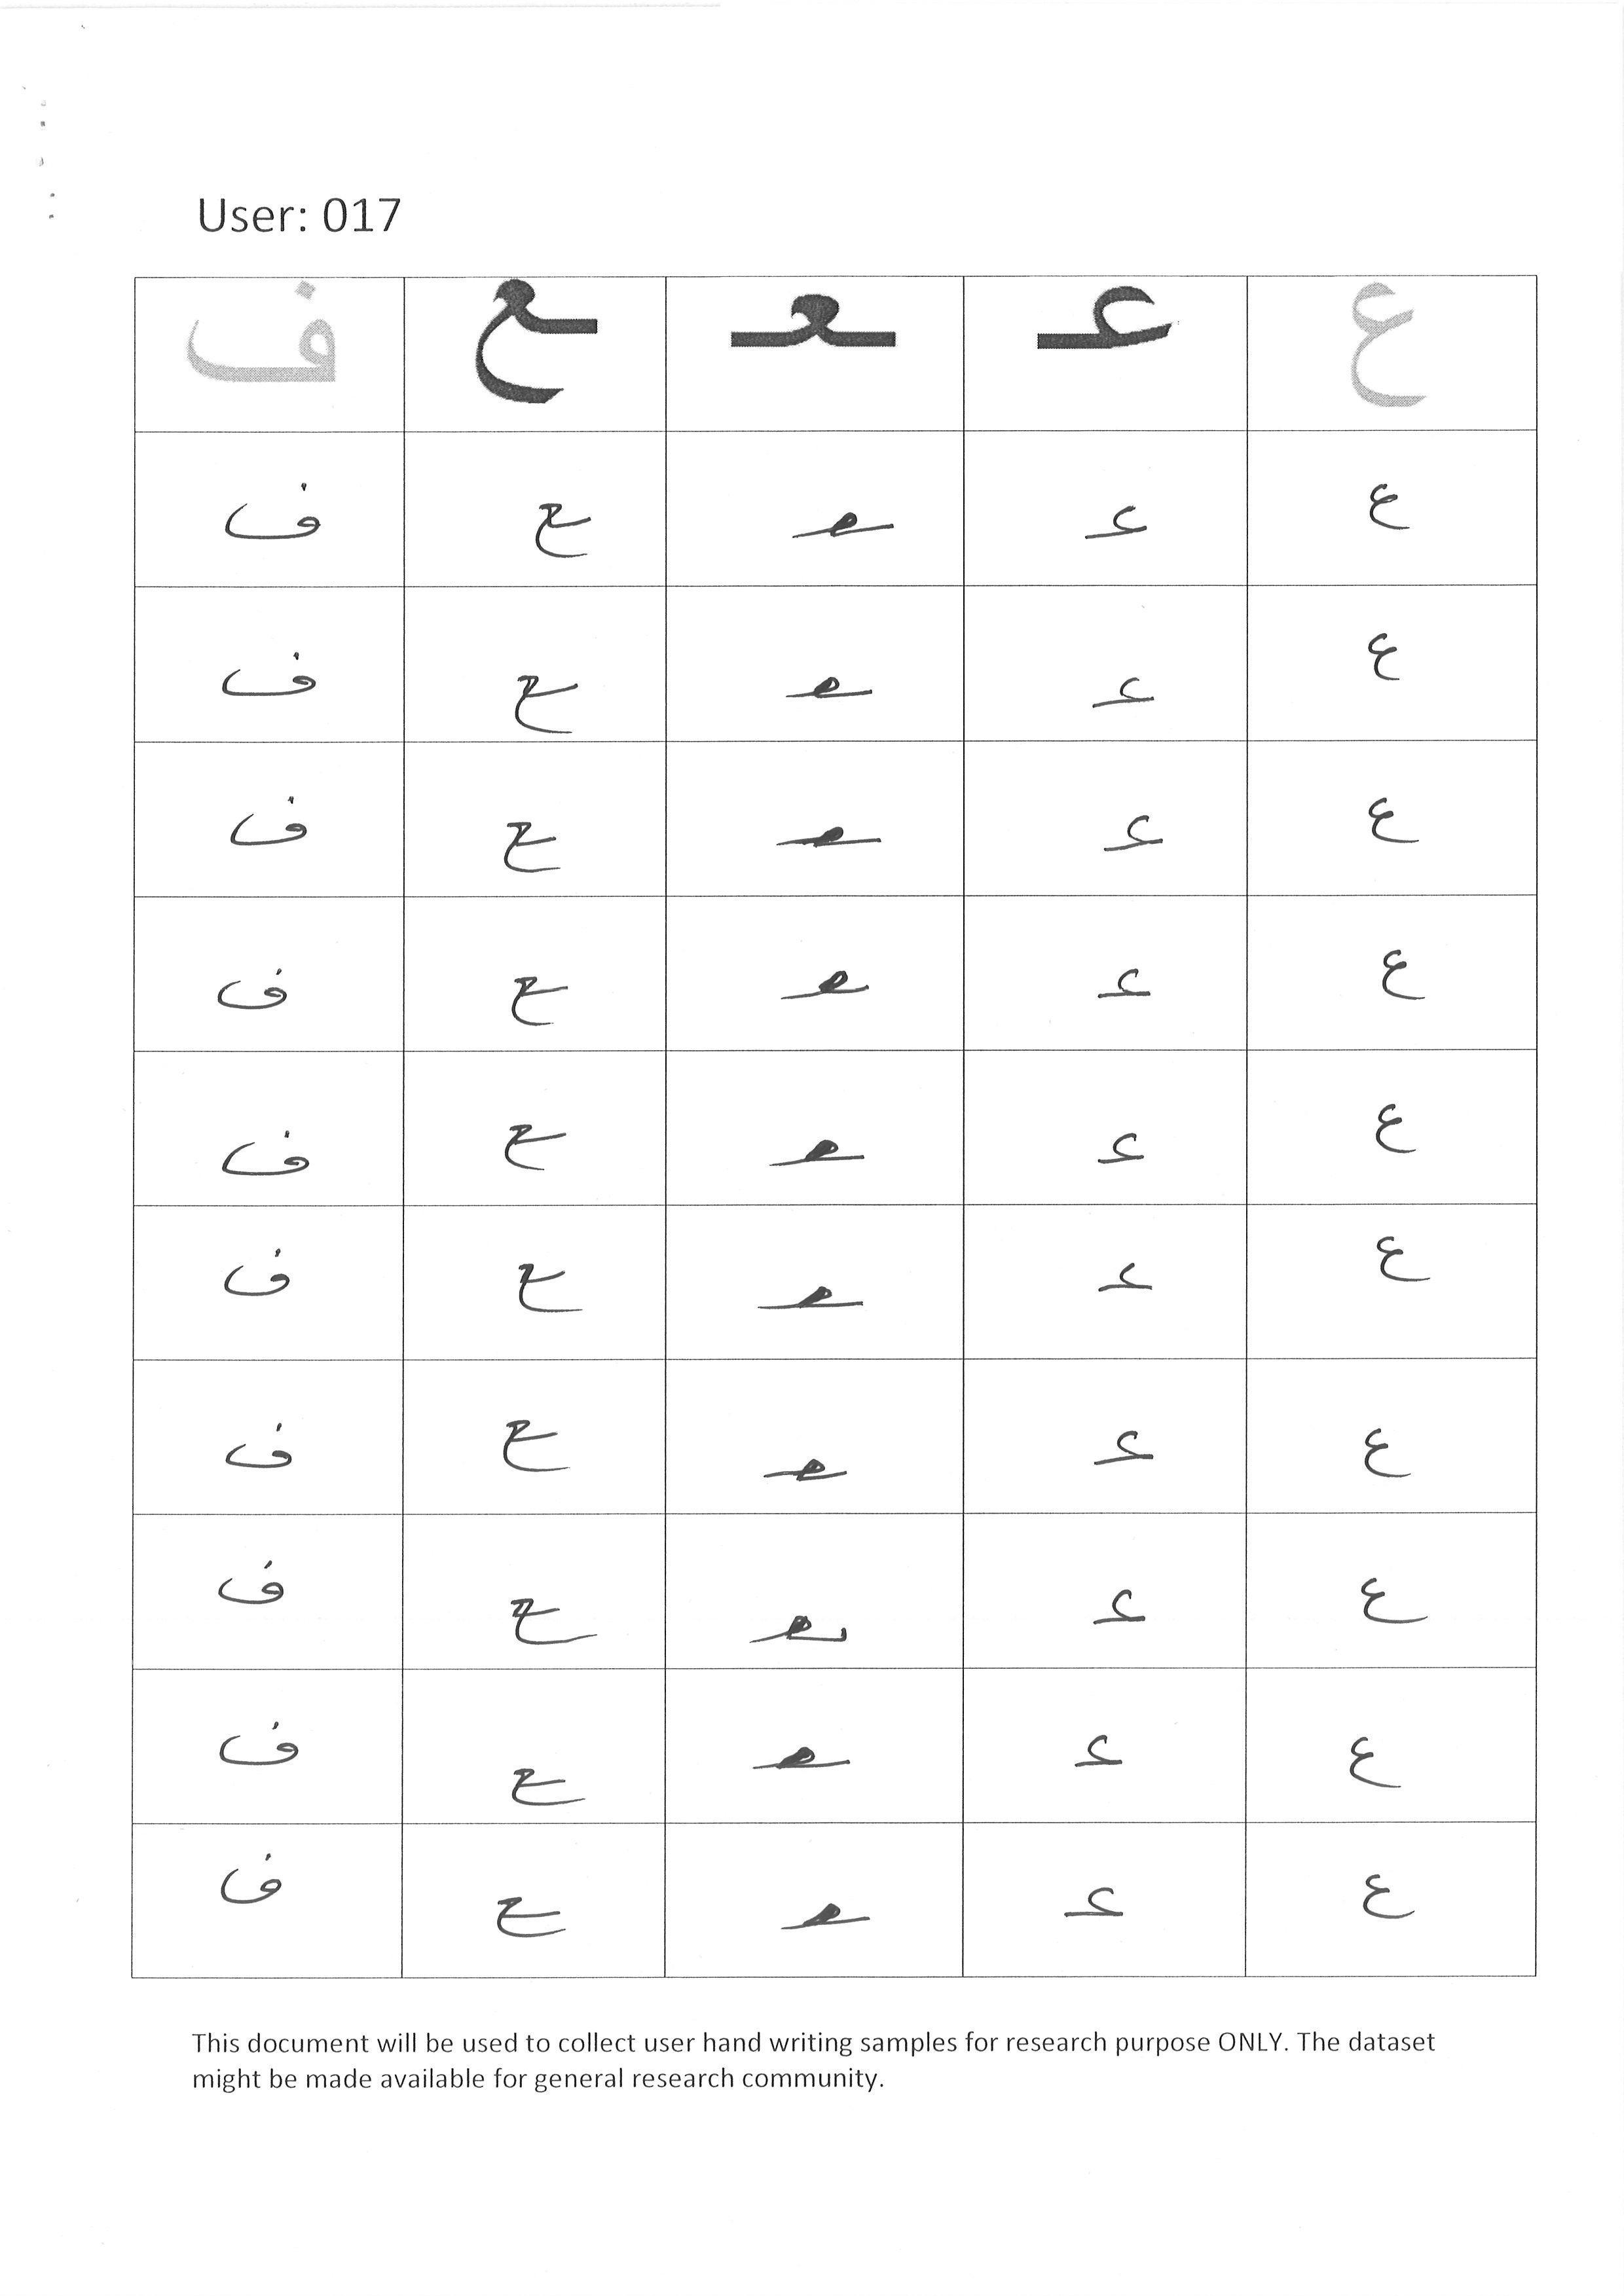 User: 017
ع عـ ـعـ ـع ف
ع عـ ـعـ ـع ف
ع عـ ـعـ ـع ف
ع عـ ـعـ ـع ف
ع عـ ـعـ ـع ف
ع عـ ـعـ ـع ف
ع عـ ـعـ ـع ف
ع عـ ـعـ ـع ف
ع عـ ـعـ ـع ف
ع عـ ـعـ ـع ف
ع عـ ـعـ ـع ف
This document will be used to collect user hand writing samples for research purpose ONLY. The dataset
might be made available for general research community.